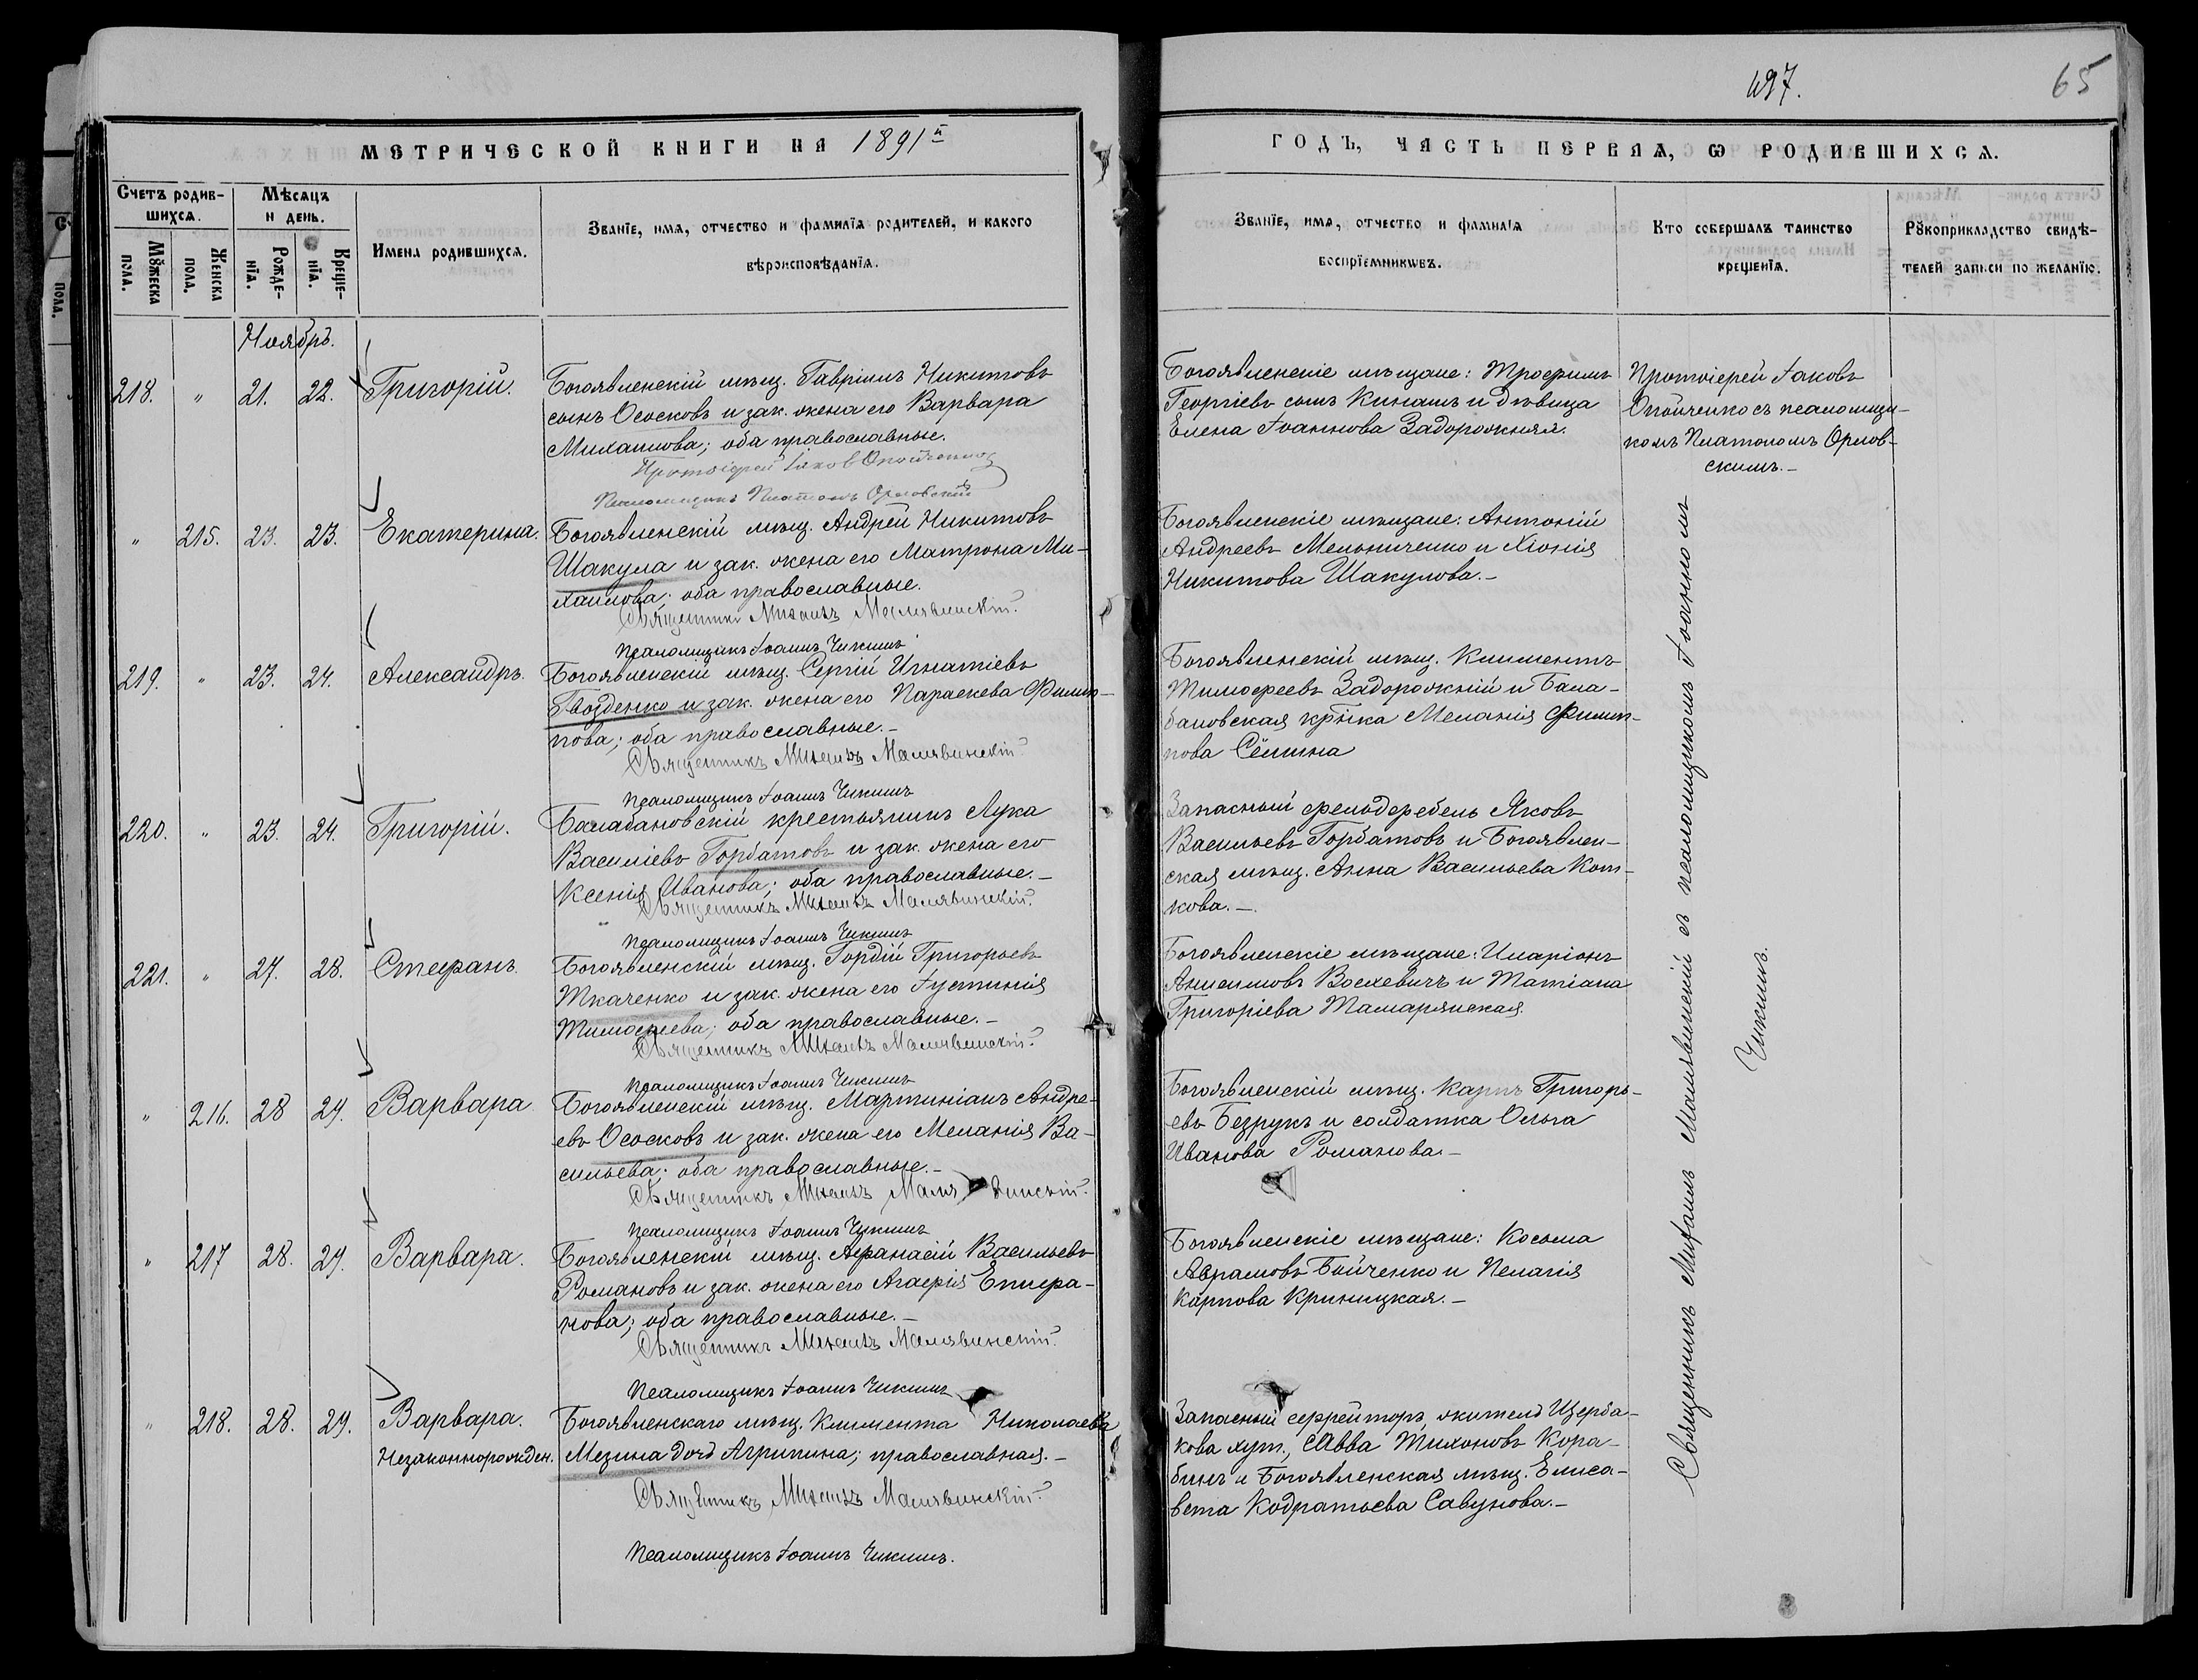 497.
65
МЕТРИЧЕСКОЙ КНИГИ НА 1891й
ГОДЪ, ЧАСТЬ ПЕРВАЯ, Ѡ РОДИВШИХСѦ.
Счетъ родив-
шихсѧ.
Мѣсяцъ
и день.
Мꙋжеска
пола.
Женска
пола.
Рожде-
нїѧ.
Креще-
нїѧ.
Имена родившихсѧ.
Званїе, имѧ, отчество и фамилїѧ родителей, и какого
вѣроисповѣданїѧ.
Званїе, имѧ, отчество и фамилїѧ
воспрїемникѡвъ.
Кто совершалъ таинство
крещенїѧ.
Рꙋкоприкладство свидѣ-
телей записи по желанїю.
Ноябрь.
218. " 21. 22. Григорій.
Богоявленскій мѣщ. Гавріилъ Никитовъ
сынъ Ососковъ и зак. жена его Варвара
Михаилова; оба православные.
Протоіерей Іаковъ Опойченко
Псаломщикъ Платонъ Орловскій
Богоявленскіе мѣщане: Трофимъ
Георгіевъ сынъ Кинашъ и дѣвица
Елена Іоаннова Задорожняя.
Протоіерей Іаковъ
Опойченко съ псаломщи-
комъ Платономъ Орлов-
скимъ.-
" 215. 23. 23. Екатерина.
Богоявленскій мѣщ. Андрей Никитовъ
Шакула и зак. жена его Матрона Ми-
хаилова; оба православные.
Священникъ Михаилъ Малявинскій.
Псаломщикъ Іоаннъ Чикинъ
Богоявленскіе мѣщане: Антоній
Андреевъ Мельниченко и Хіонія
Никитова Шакулова.-
219. " 23. 24. Александръ.
Богоявленскій мѣщ. Сергій Игнатіевъ
Гвозденко и зак. жена его Параскева Филип-
пова; оба православные.-
Священникъ Михаилъ Малявинскій
Псаломщикъ Іоаннъ Чикинъ
Богоявленскій мѣщ. Климентъ
Тимофеевъ Задорожній и Бала-
бановская крѣнка Меланія Филип-
пова Сёмина
220. " 23. 24. Григорій.
Балабановскій крестьянинъ Лука
Василіевъ Горбатовъ и зак. жена его
Ксенія Иванова; оба православные.-
Священникъ Михаилъ Малявинскій.
Псаломщикъ Іоаннъ Чикинъ
Запасный фельдфебель Яковъ
Васильевъ Горбатовъ и Богоявлен-
ская мѣщ. Анна Васильева Кот-
кова.-
221. " 27. 28. Стефанъ.
Богоявленскій мѣщ. Гордій Григорьевъ
Ткаченко и зак. жена его Іустинія
Тимофеева; оба православные.-
Священникъ Михаилъ Малявинскій.
Псаломщикъ Іоаннъ Чикинъ
Богоявленскіе мѣщане: Иларіонъ
Анисимовъ Восхевичъ и Татіана
Григоріева Тамарянская.
" 216. 28 29. Варвара
Богоявленскій мѣщ. Мартиніанъ Андре-
евъ Ососковъ и зак. жена его Меланія Ва-
сильева; оба православные.-
Священникъ Михаилъ Малявинскій.
Псаломщикъ Іоаннъ Чикинъ
Богоявленскій мѣщ. Карпъ Григорь-
евъ Безрукъ и солдатка Ольга
Иванова Романова.-
" 217 28. 29. Варвара.
Богоявленскій мѣщ. Афанасій Васильевъ
Романовъ и зак. жена его Агафія Епифа-
нова; оба православные.-
Священникъ Михаилъ Малявинскій.
Псаломщикъ Іоаннъ Чикинъ
Богоявленскіе мѣщане: Косьма
Аврамовъ Бойченко и Пелагія
Карпова Криницкая.-
" 218. 28. 29. Варвара.
Незаконнорожден.
Богоявленскаго мѣщ. Климента Николаева
Мезина дочь Агрипина; православная.-
Священникъ Михаилъ Малявинскій.
Псаломщикъ Іоаннъ Чикинъ.
Запасный ефрейторъ, житель Щерба-
кова хут., Савва Тихоновъ Кора-
бинъ и Богоявленская мѣщ. Елиса-
вета Кодратьева Савунова.-
Священникъ Михаилъ Малявинскій съ псаломщикомъ Іоанномъ
Чикинъ.